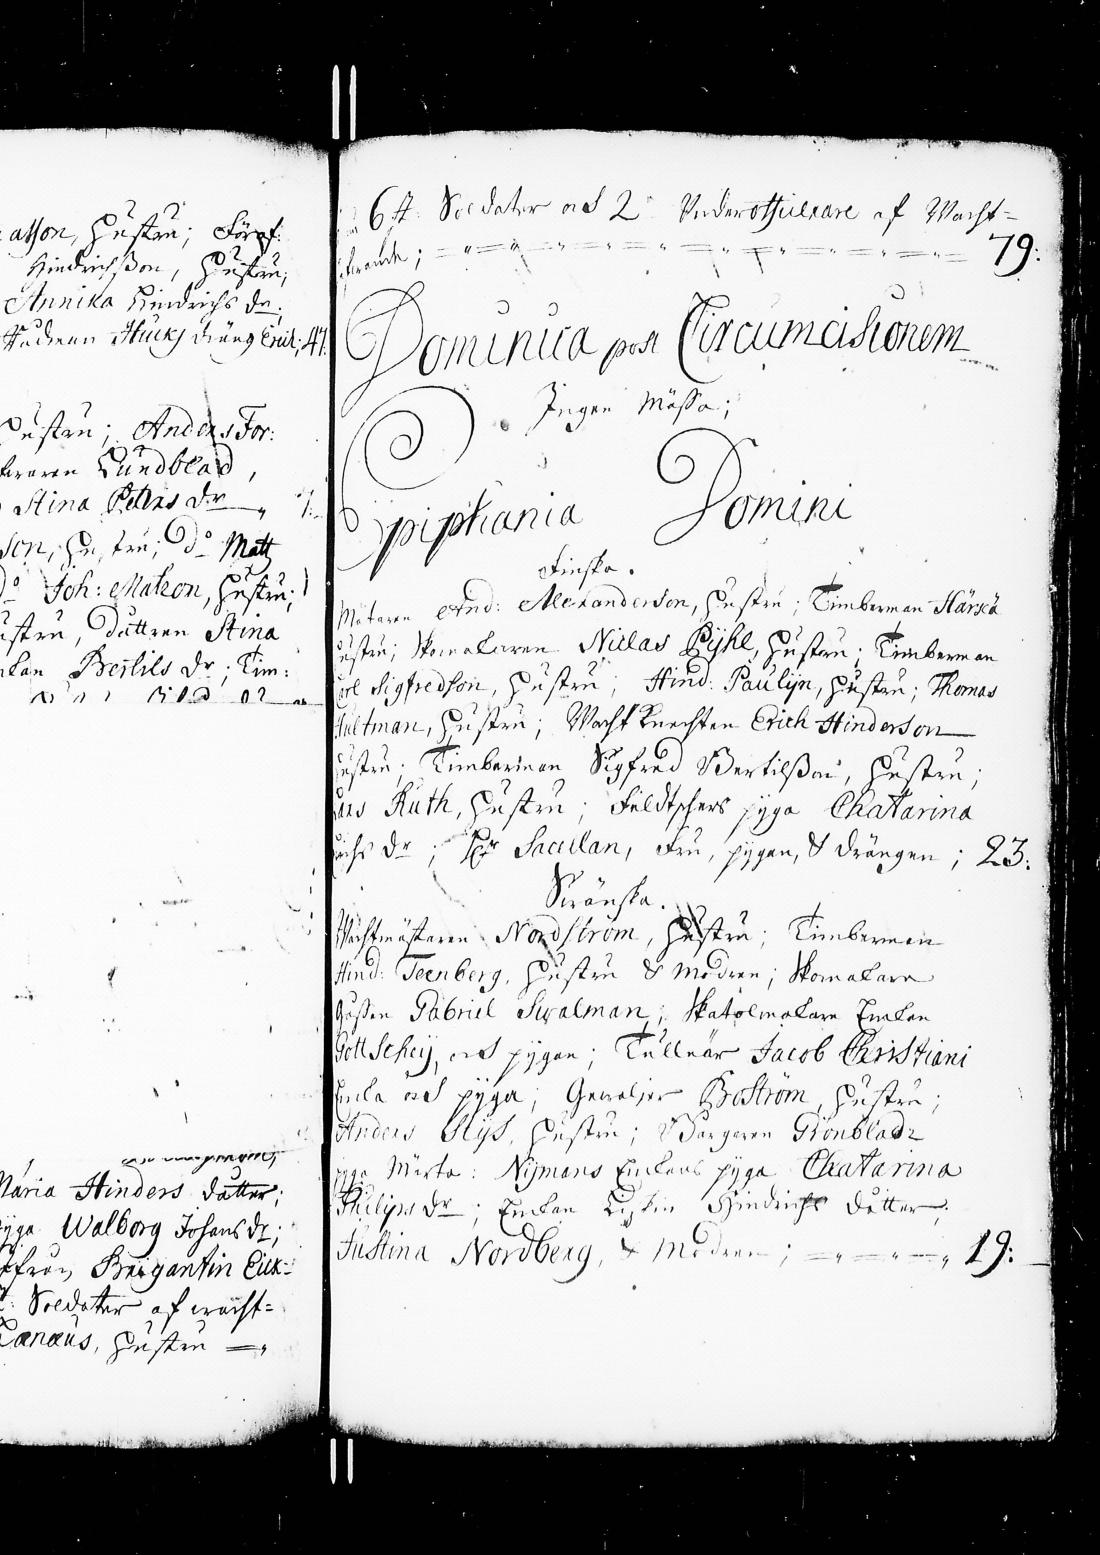 atson, Hustru; Föraf:
Hindrichsson, Hustru;
Annika Hindrichs dr;
Hucks dräng Erich; 47.
Hustru; Anders For:
Lundblad,
Stina Peters dr 7.
son, Hustru; Do Matts
Do Joh: Matson, Hustru;
ustru, dottren Stina
Enkan Bertils dr; Tim:
Maria Hinders dotter;
pyga Walborg Johans dr;
Brigantin Eek=
Soldater af wacht=
Lænæus, Hustru
6 st. Soldater och 2 Underofficerare af Wacht=
79:
Dominica post Circumcisionem
Ingen Mässa;
Epiphania Domini
Finska.
And: Alexanderson, Hustru; Timberman Härsä
ustru; Skomakaren Niclas Pijhl, Hustru; Timberman
Carl Sigfredson, Hustru; Hind: Paulijn, Hustru; Thomas
Hultman, Hustru; Wacht Knechten Erich Hinderson
ustru; Timberman Sigfred Bertilsson, Hustru;
Lars Ruth, Hustru; Feldtschers pyga Chatarina
richs dr; Hr Sacillan, Fru, pygan, & drängen; 23:
Swänska.
Wachtmästaren Nordström, Hustru; Timberman
Hind: Teenberg, Hustru & Modren; Skomakare
Gossen Gabriel Swalman; Skatolmakare Enkan
Gottschey, och pygan; Tullnär Jacob Christiani
Enka och pyga; Gewaljer Boström, Hustru;
Anders Slijs, Hustru; Borgaren Grönbladz
pyga Märta: Nijmans Enkans pyga Chatarina
Philips dr; Enkan Hindrichs dotter;
Justina Nordberg, & Modren; 19: